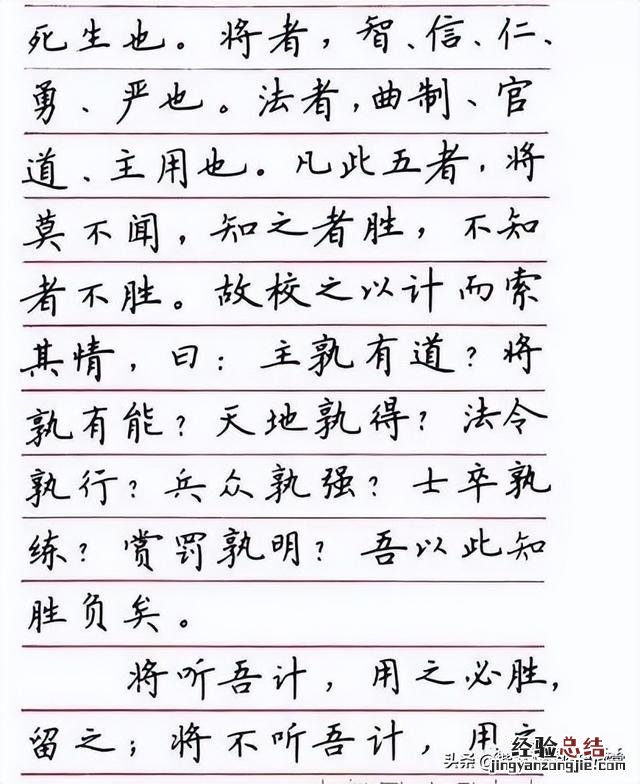 死生也。将者，智、信、仁、
勇、严也。法者，曲制、官
道、主用也。凡此五者，将
莫不闻，知之者胜，不知
者不胜。故校之以计而索
其情，曰：主孰有道？将
孰有能？天地孰得？法令
孰行？兵众孰强？士卒孰
练？赏罚孰明？吾以此知
胜负矣。
将听吾计，用之必胜，
留之；将不听吾计，用之
头条
经验总结
jingyanzongjie.com